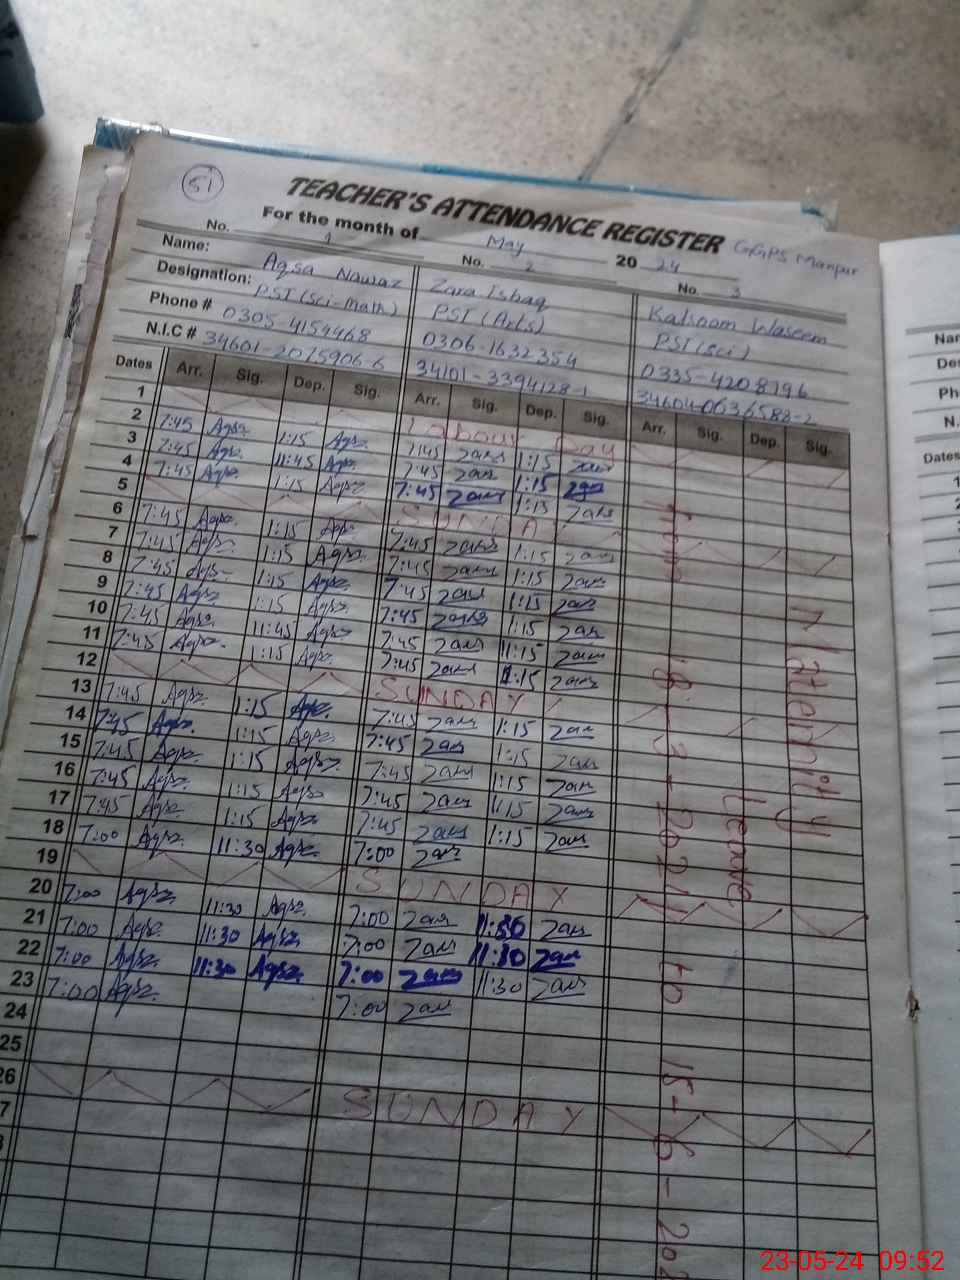 51
TEACHER'S ATTENDANCE REGISTER GGPS Manpur
For the month of May 20 24
No. 1 No. 2 No. 3
Name: Aqsa Nawaz Zara Ishaq Kalsoom Waseem
Designation: PST (Sci-Math) PST (Arts) PST (Sci)
Phone # 0305-4154468 0306-1632354 0335-4208796
N.I.C # 34601-2075906-6 34101-3394128-1 34604-0636588-2
Dates Arr. Sig. Dep. Sig. Arr. Sig. Dep. Sig. Arr. Sig. Dep. Sig.
1 Labour Day
2 7:45 Aqsa 1:15 Aqsa 7:45 Zara 1:15 Zara
3 7:45 Aqsa 11:45 Aqsa 7:45 Zara 1:15 Zara
4 7:45 Aqsa 1:15 Aqsa 7:45 Zara 1:15 Zara
5 SUNDAY
6 7:45 Aqsa 1:15 Aqsa 7:45 Zara 1:15 Zara
7 7:45 Aqsa 1:15 Aqsa 7:45 Zara 1:15 Zara
8 7:45 Aqsa 1:15 Aqsa 7:45 Zara 1:15 Zara
9 7:45 Aqsa 1:15 Aqsa 7:45 Zara 1:15 Zara
10 7:45 Aqsa 11:45 Aqsa 7:45 Zara 11:15 Zara
11 7:45 Aqsa 1:15 Aqsa 7:45 Zara 1:15 Zara
12 SUNDAY
13 7:45 Aqsa 1:15 Aqsa 7:45 Zara 1:15 Zara
14 7:45 Aqsa 1:15 Aqsa 7:45 Zara 1:15 Zara
15 7:45 Aqsa 1:15 Aqsa 7:45 Zara 1:15 Zara
16 7:45 Aqsa 1:15 Aqsa 7:45 Zara 1:15 Zara
17 7:45 Aqsa 1:15 Aqsa 7:45 Zara 1:15 Zara
18 7:00 Aqsa 11:30 Aqsa 7:00 Zara
19 SUNDAY
20 7:00 Aqsa 11:30 Aqsa 7:00 Zara 11:30 Zara
21 7:00 Aqsa 11:30 Aqsa 7:00 Zara 11:30 Zara
22 7:00 Aqsa 11:30 Aqsa 7:00 Zara 11:30 Zara
23 7:00 Aqsa 7:00 Zara
24
25
26 SUNDAY
7
8
Maternity
Leave
from 18-3-2024 to 15-6-202
Nar
Des
Ph
N.
Dates
23-05-24 09:52